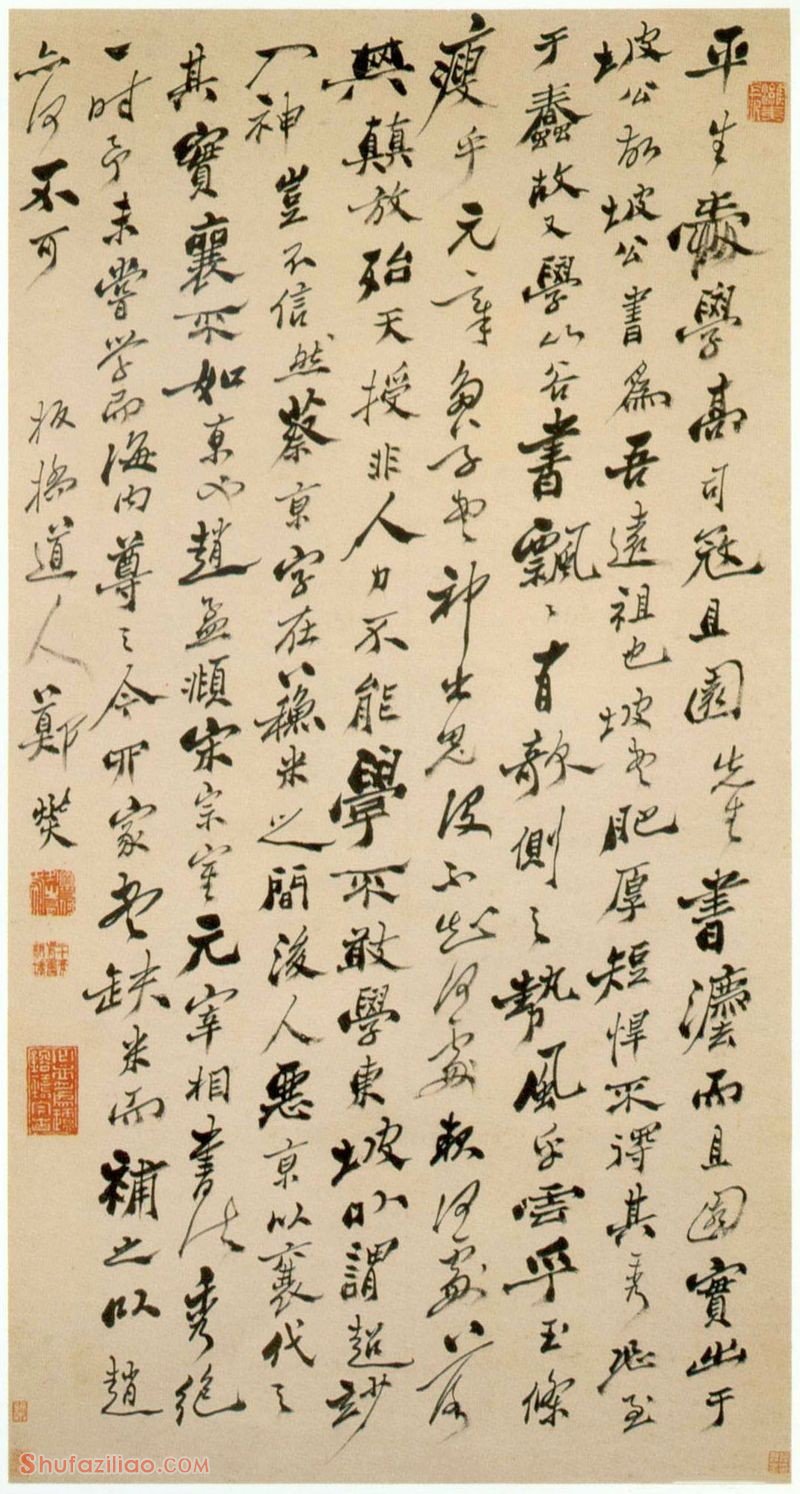 平生愛學高司寇且園先生書灋而且園實出于
坡公故坡公書為吾遠祖也坡書肥厚短悍不得其秀恐至
于蠢故又學山谷書飄〻有欹側之勢風乎雲乎玉條
瘦乎元章書神出鬼没不知何處何處落
與顛放殆天授非人力不能學不敢學東坡以謂超妙
入神豈不信然蔡京字在蘇米之間後人惡京以襄代之
其實襄不如京也趙孟頫宋宗室元宰相書法秀絕
一時予未嘗學而海内尊之今四家書缺米而補之以趙
亦何不可
板橋道人鄭燮
Shufaziliao.COM